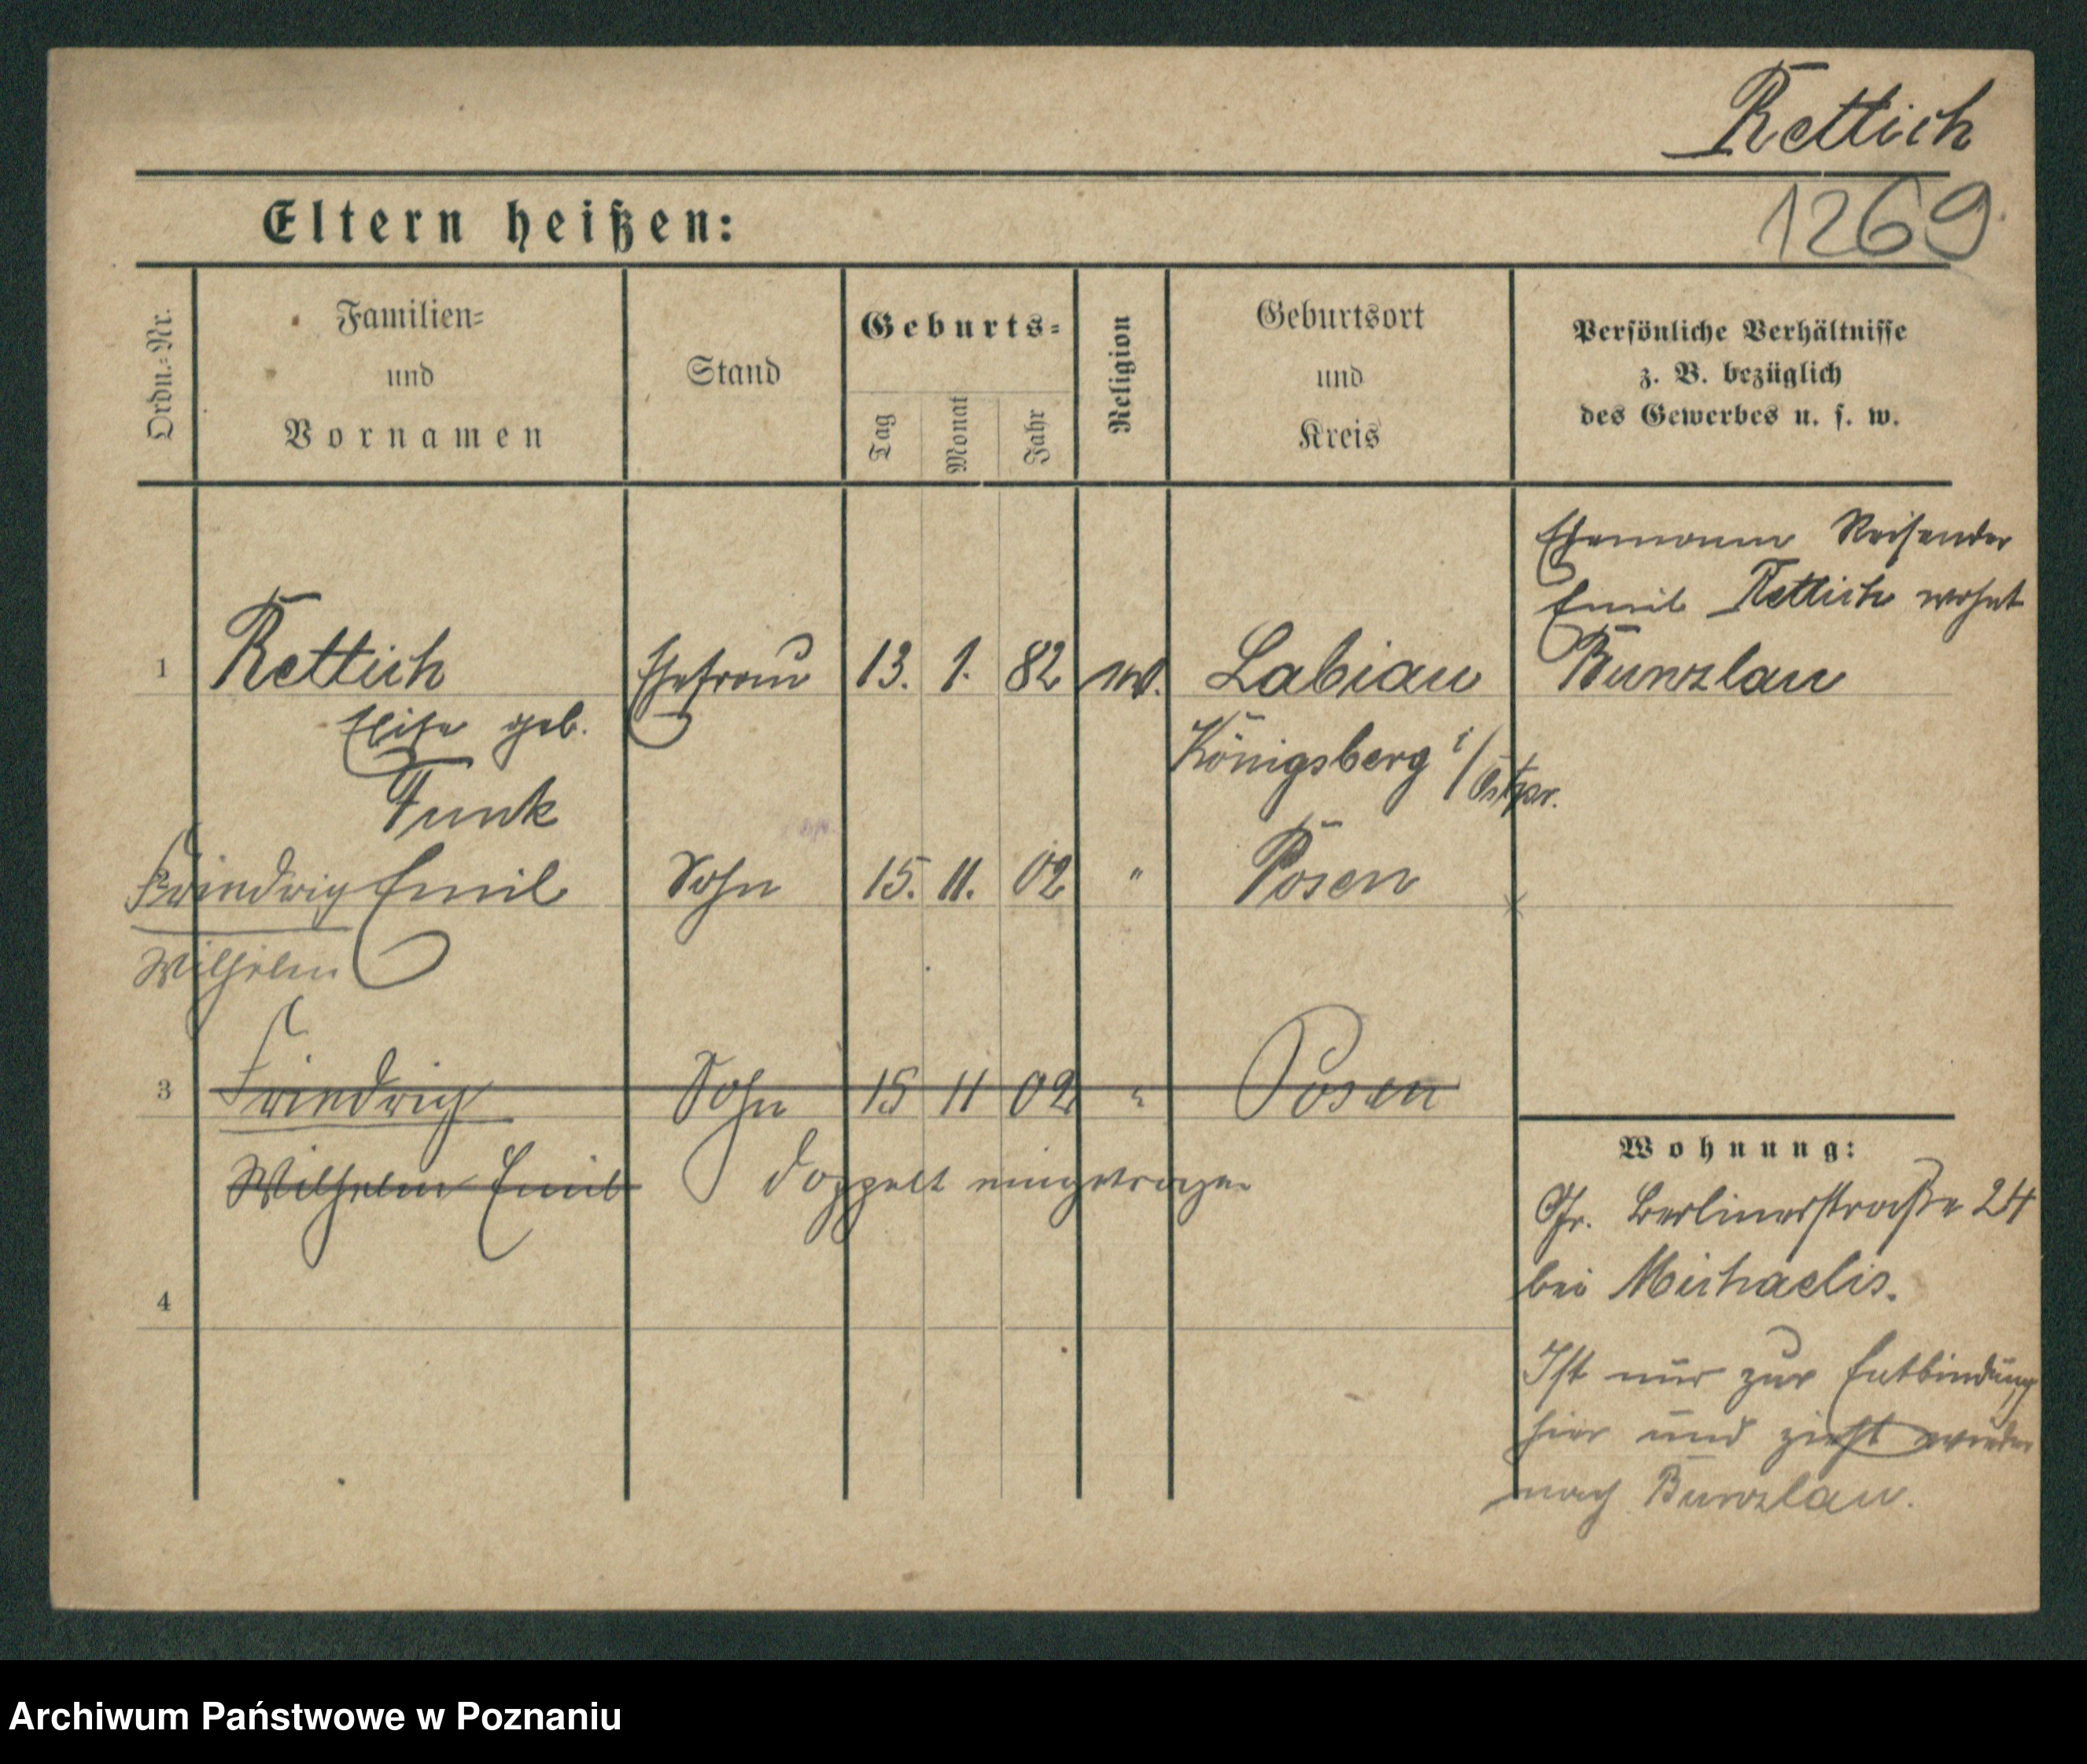 Rettich
1269
Eltern heißen:
Ordn.-Nr.
Familien-
und
Vornamen
Stand
Geburts-
Tag
Monat
Jahr
Religion
Geburtsort
und
Kreis
Persönliche Verhältnisse
z. B. bezüglich
des Gewerbes u. s. w.
Ehemann Reisender
Emil Rettich wohnt
Bunzlau
1 Rettich Ehefrau 13. 1. 82 ev. Labiau
Elise geb.
Funk
Königsberg i/Ostpr.
Friedrich Emil Sohn 15. 11. 02 " Posen
Wilhelm
3 Friedrich Sohn 15 11 02 " Posen
Wilhelm Emil doppelt eingetragen
4
Wohnung:
Gr. Berlinerstraße 24
bei Michaelis.
Ist nur zur Entbindung
hier und zieht wieder
nach Bunzlau.
Archiwum Państwowe w Poznaniu